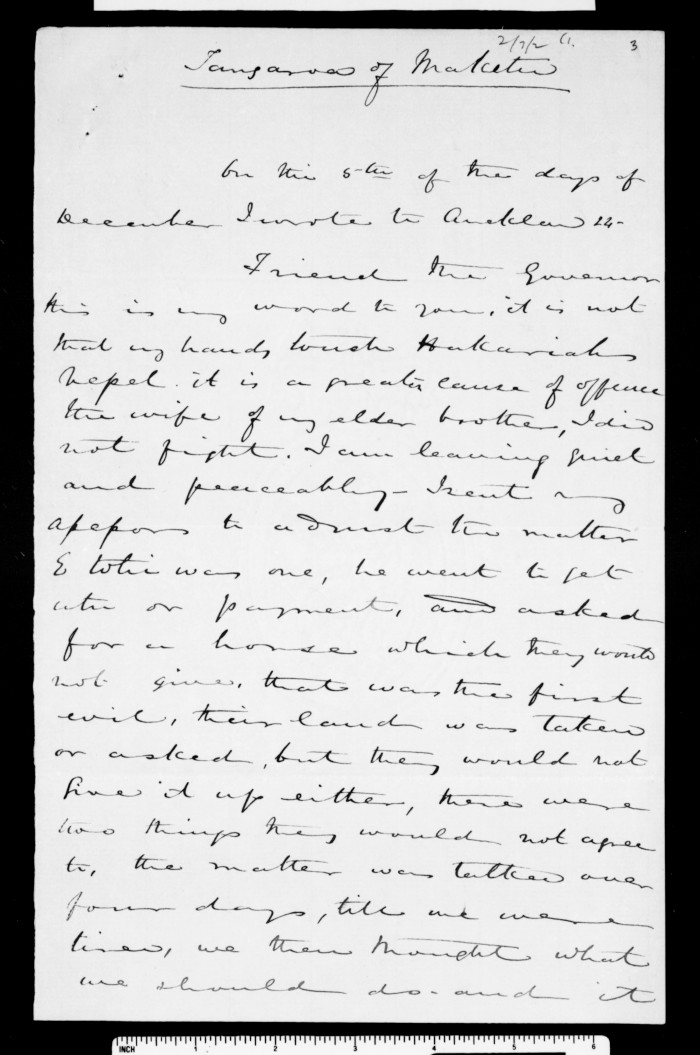 3
Tangaroa of Maketu
On the 5th of the days of
December I wrote to Aucklan
Friend the Governor
this is my word to you, it is not
that my hands touch Hakariah
it is a greater cause of offence
the wife of my elder brother, I did
not fight. I am leaving quiet
and peaceably - I sent my
to adjust the matter
E was one, he went to get
utu or payment, and asked
for a horse which they would
not give, that was the first
evil, their land was taken
or asked, but they would not
give it up either, there were
two things they would not agree
to, the matter was talked over
four days, till we were
tired, we then thought what
we should do - and it
INCH 1 2 3 4 5 6